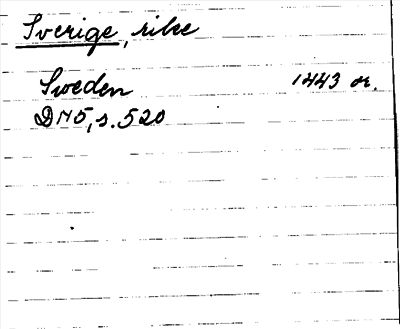 Sverige, rike
Sweden 1443 or.
DN5, s. 520